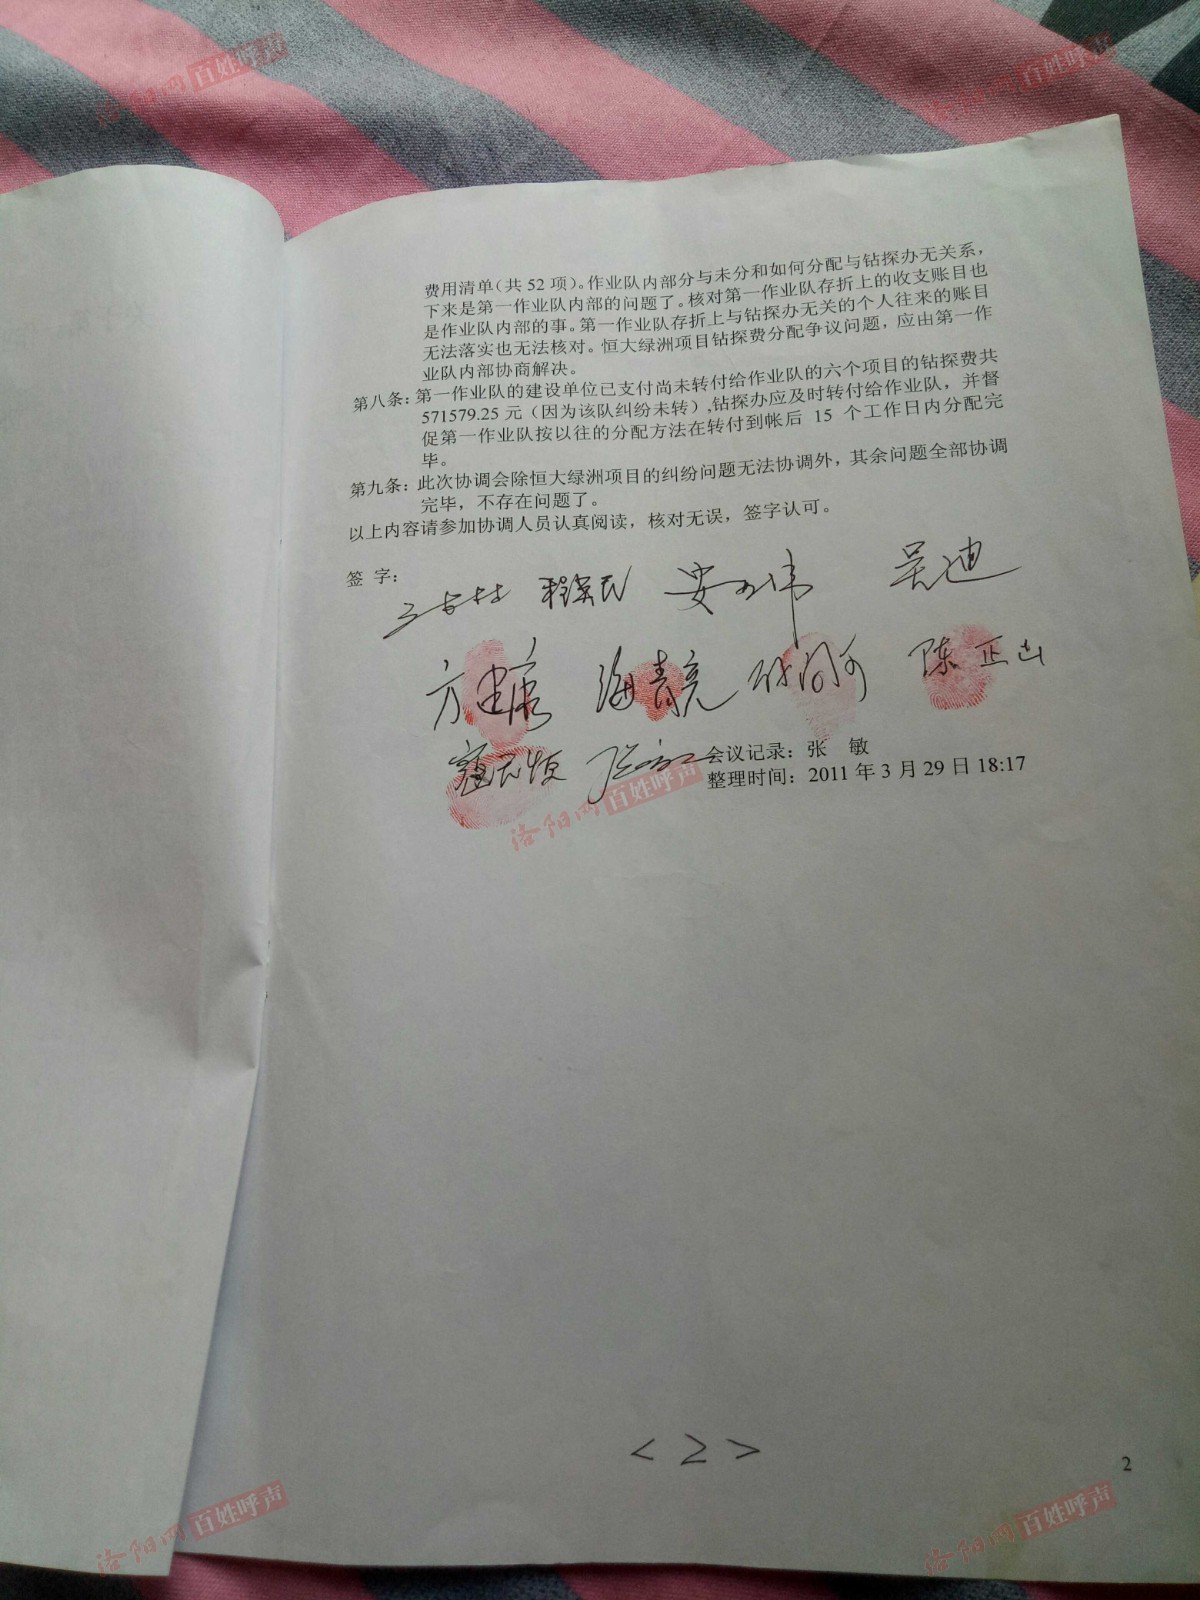 洛阳网 百姓呼声
洛阳网 百姓呼声
费用清单(共 52 项)。作业队内部分与未分和如何分配与钻探办无关系,
下来是第一作业队内部的问题了。核对第一作业队存折上的收支账目也
是作业队内部的事。第一作业队存折上与钻探办无关的个人往来的账目
无法落实也无法核对。恒大绿洲项目钻探费分配争议问题,应由第一作
业队内部协商解决。
第八条:第一作业队的建设单位已支付尚未转付给作业队的六个项目的钻探费共
571579.25 元(因为该队纠纷未转),钻探办应及时转付给作业队,并督
促第一作业队按以往的分配方法在转付到帐后 15 个工作日内分配完
毕。
第九条:此次协调会除恒大绿洲项目的纠纷问题无法协调外,其余问题全部协调
完毕,不存在问题了。
以上内容请参加协调人员认真阅读,核对无误,签字认可。
签 字:
吴迪
海青亮 陈正山
会议记录:张 敏
整理时间:2011 年 3 月 29 日 18:17
洛阳网 百姓呼声
<2>
2
洛阳网 百姓呼声
洛阳网 百姓呼声